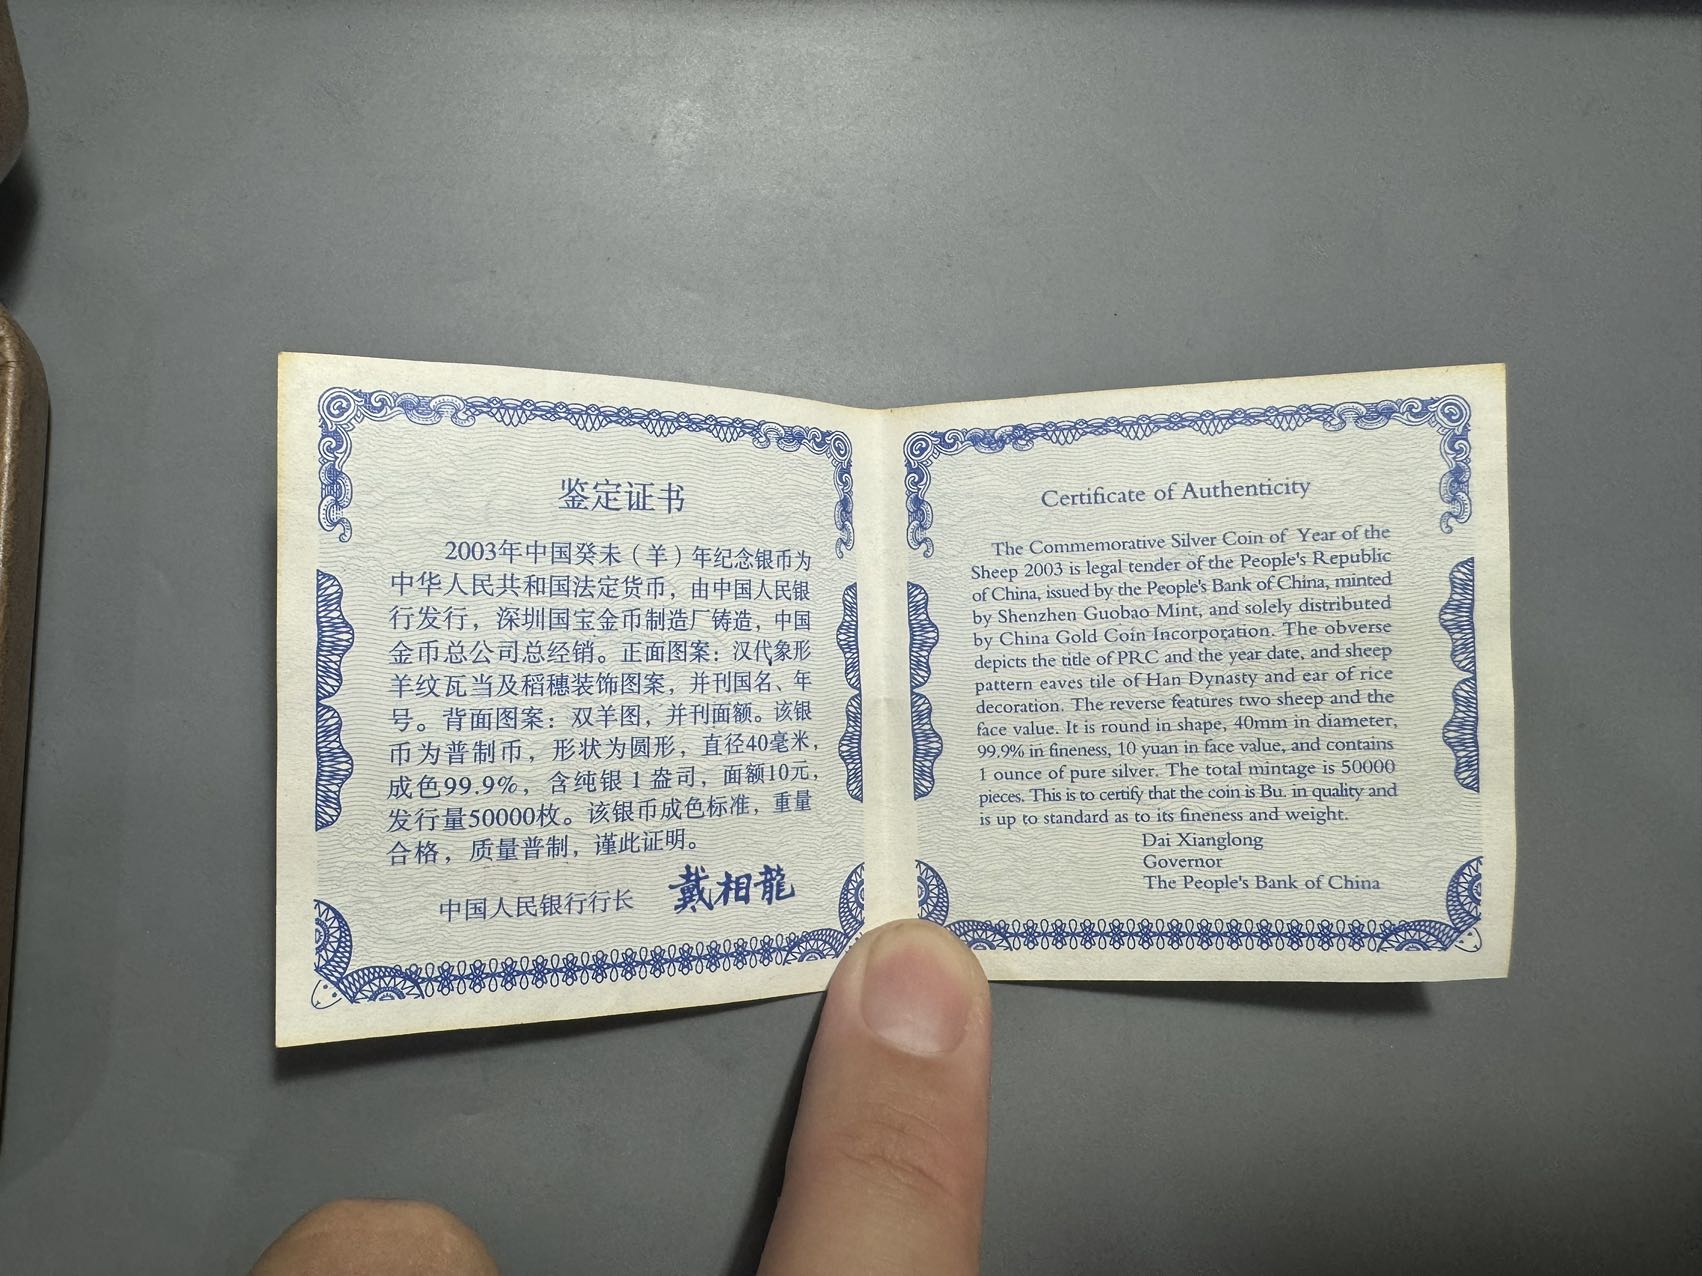 鉴定证书
2003年中国癸未（羊）年纪念银币为
中华人民共和国法定货币，由中国人民银
行发行，深圳国宝金币制造厂铸造，中国
金币总公司总经销。正面图案：汉代象形
羊纹瓦当及稻穗装饰图案，并刊国名、年
号。背面图案：双羊图，并刊面额。该银
币为普制币，形状为圆形，直径40毫米，
成色99.9%，含纯银1盎司，面额10元，
发行量50000枚。该银币成色标准，重量
合格，质量普制，谨此证明。
中国人民银行行长 戴相龍
Certificate of Authenticity
The Commemorative Silver Coin of Year of the
Sheep 2003 is legal tender of the People's Republic
of China, issued by the People's Bank of China, minted
by Shenzhen Guobao Mint, and solely distributed
by China Gold Coin Incorporation. The obverse
depicts the title of PRC and the year date, and sheep
pattern eaves tile of Han Dynasty and ear of rice
decoration. The reverse features two sheep and the
face value. It is round in shape, 40mm in diameter,
99.9% in fineness, 10 yuan in face value, and contains
1 ounce of pure silver. The total mintage is 50000
pieces. This is to certify that the coin is Bu. in quality and
is up to standard as to its fineness and weight.
Dai Xianglong
Governor
The People's Bank of China